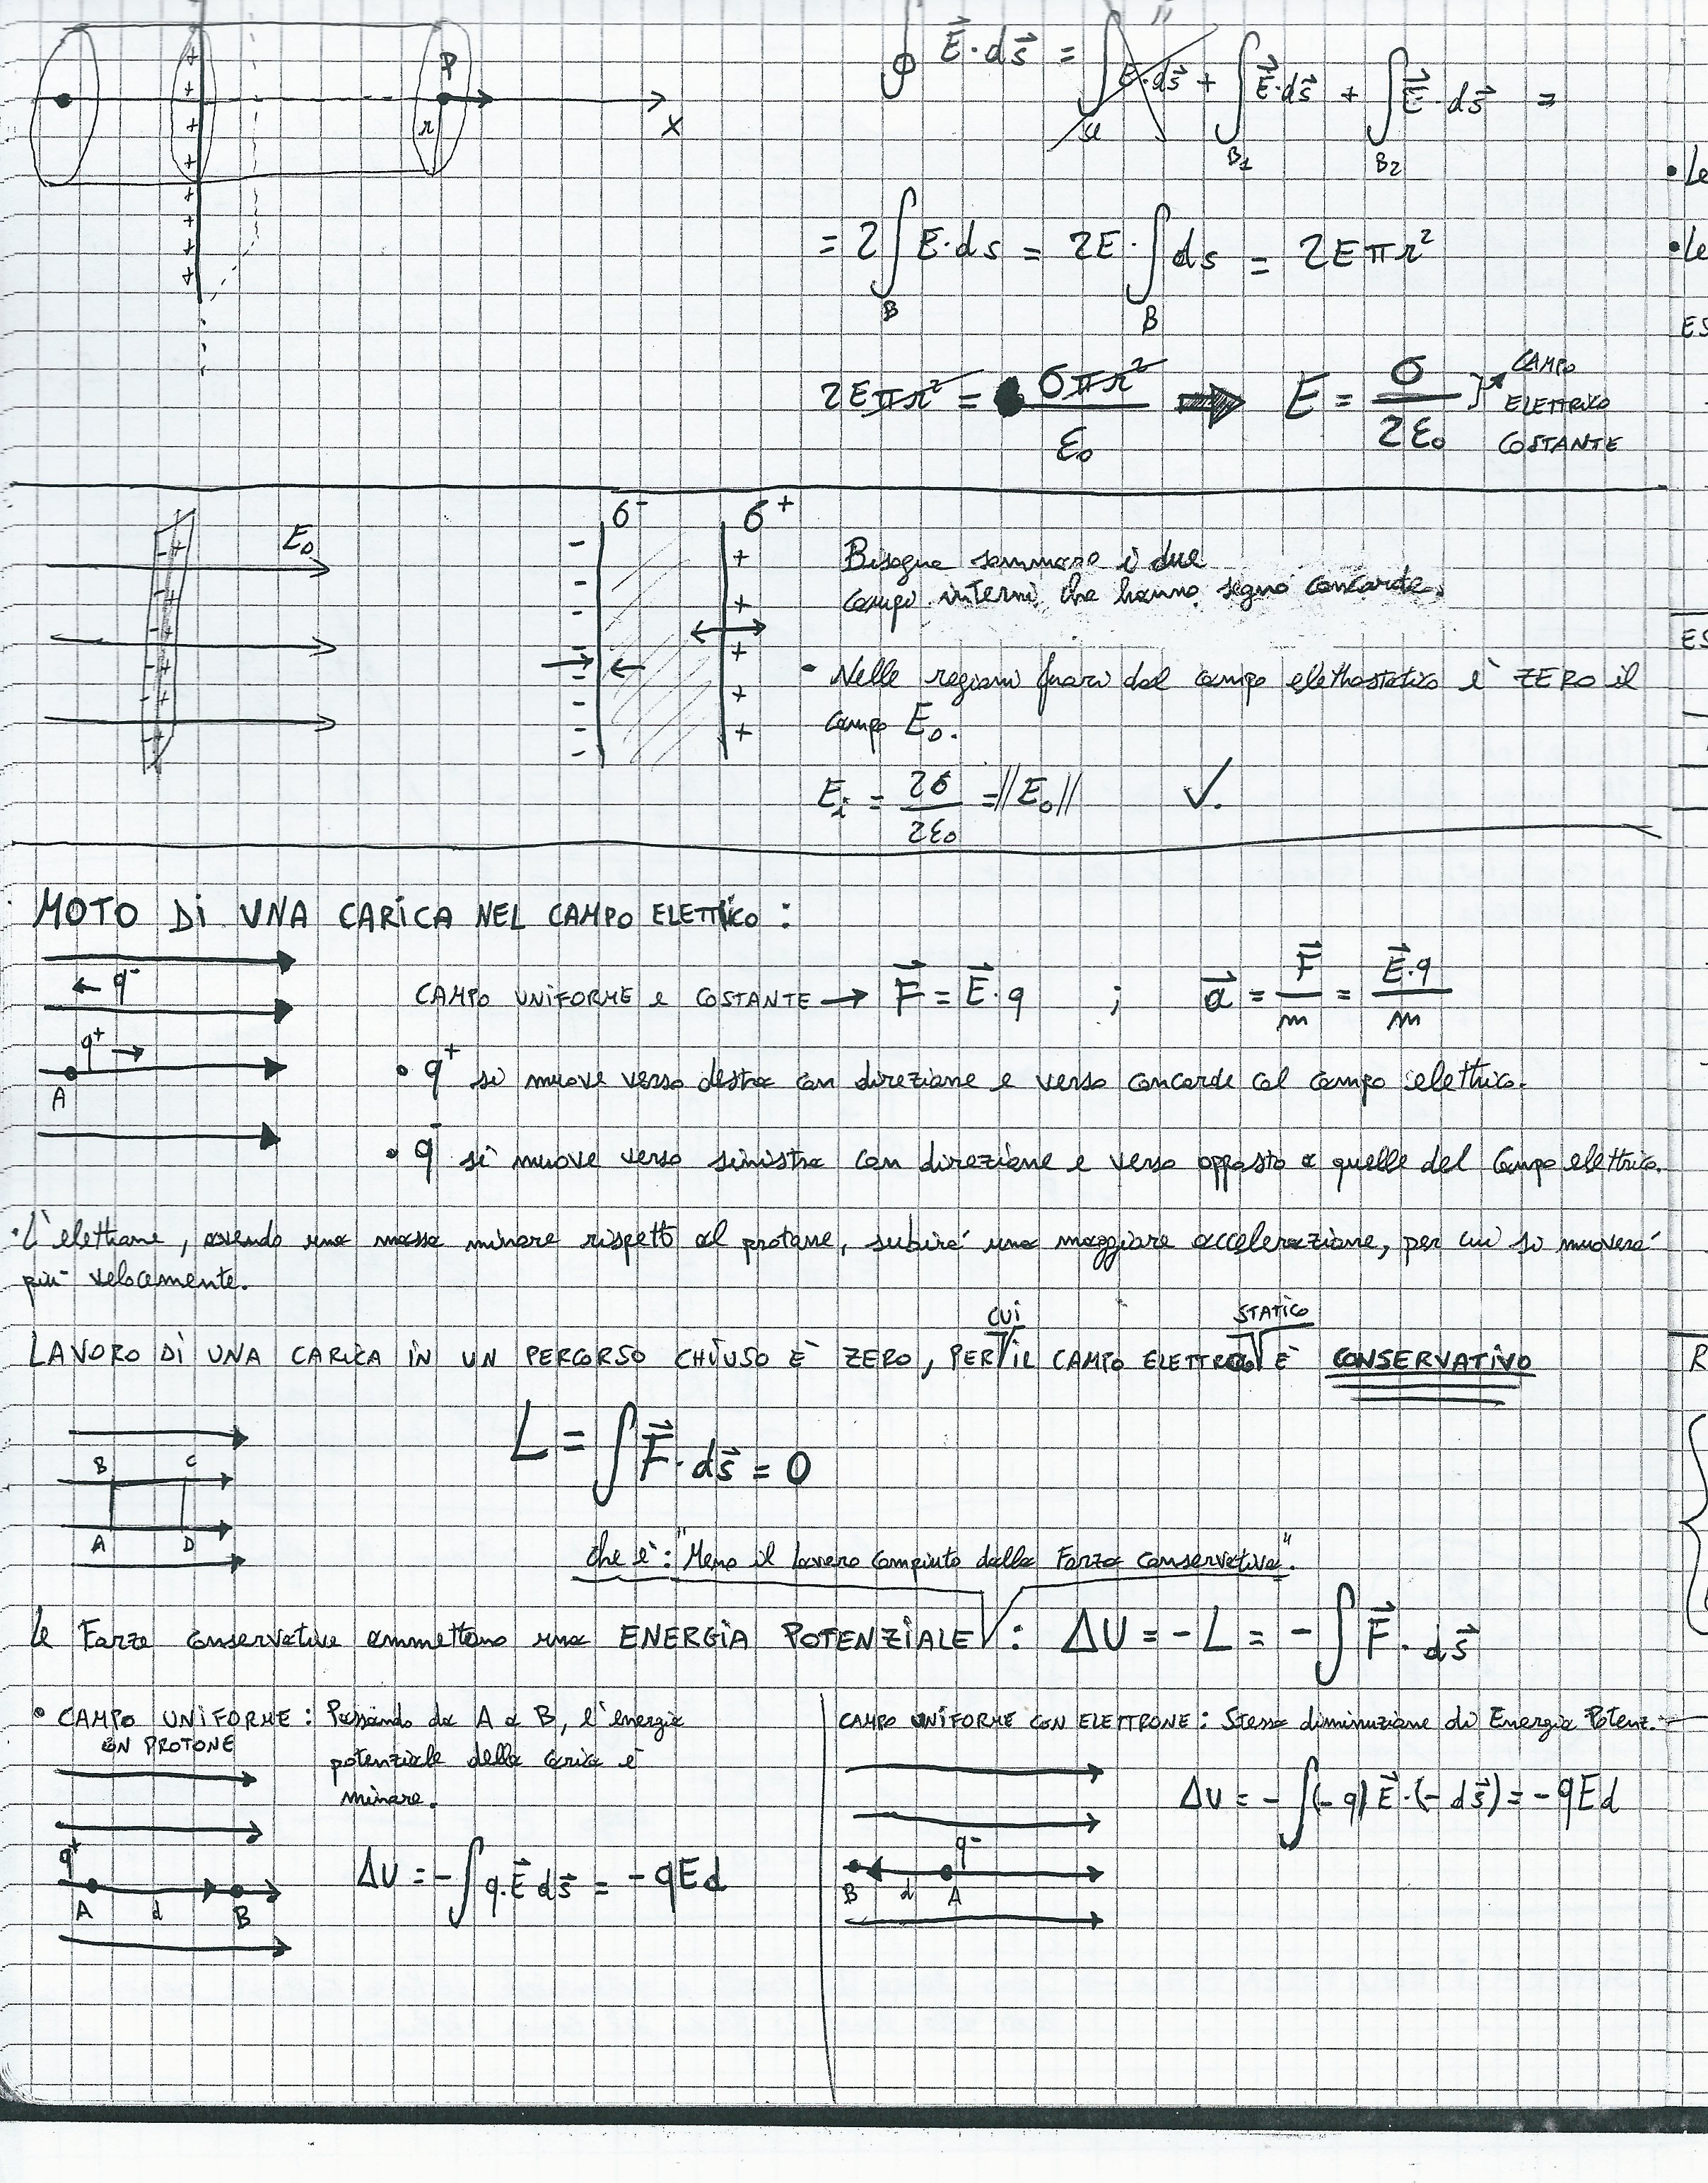 P
r
x
∮ E⃗·ds⃗ = ∫ E·ds⃗ + ∫ E⃗·ds⃗ + ∫ E⃗·ds⃗ =
B1 B2
= 2∫ E·ds = 2E·∫ ds = 2Eπr²
B B
2Eπr² = σπr²/ε₀ ⇒ E = σ/2ε₀
CAMPO
ELETTRICO
COSTANTE
E₀
σ⁻ σ⁺
Bisogna sommare i due
campi interni che hanno segno concorde.
• Nelle regioni fuori dal campo elettrostatico è ZERO il
campo E₀.
Ei = 2σ/2ε₀ = ||E₀|| ✓.
MOTO Di UNA CARiCA NEL CAMPO ELETTRiCO :
← q⁻
q⁺ →
A
CAMPO UNiFORME e COSTANTE → F⃗ = E⃗·q ; a⃗ = F⃗/m = E⃗·q/m
• q⁺ si muove verso destra con direzione e verso concorde col campo elettrico.
• q⁻ si muove verso sinistra con direzione e verso opposto a quelle del Campo elettrico.
• L'elettrone, avendo una massa minore rispetto al protone, subirà una maggiore accelerazione, per cui si muoverà
più velocemente.
CUi STATiCO
LAVORO Di UNA CARiCA iN UN PERCORSO CHiUSO È ZERO, PER iL CAMPO ELETTRiCO È CONSERVATiVO
L = ∫ F⃗·ds⃗ = 0
B C
A D
che è: "Meno il lavoro compiuto dalla Forza conservativa".
le Forze conservative ammettono una ENERGiA POTENZiALE : ΔU = -L = -∫ F⃗·ds⃗
• CAMPO UNiFORME : Passando da A a B, l'energia
CON PROTONE
potenziale della carica è
minore.
q⁺
A d B
ΔU = -∫ q·E⃗ ds⃗ = -qEd
CAMPO UNiFORME CON ELETTRONE : Stessa diminuzione di Energia Potenz.
ΔU = -∫(-q) E⃗·(-ds⃗) = -qEd
q⁻
B d A
• Le
• Le
ES
ES
R